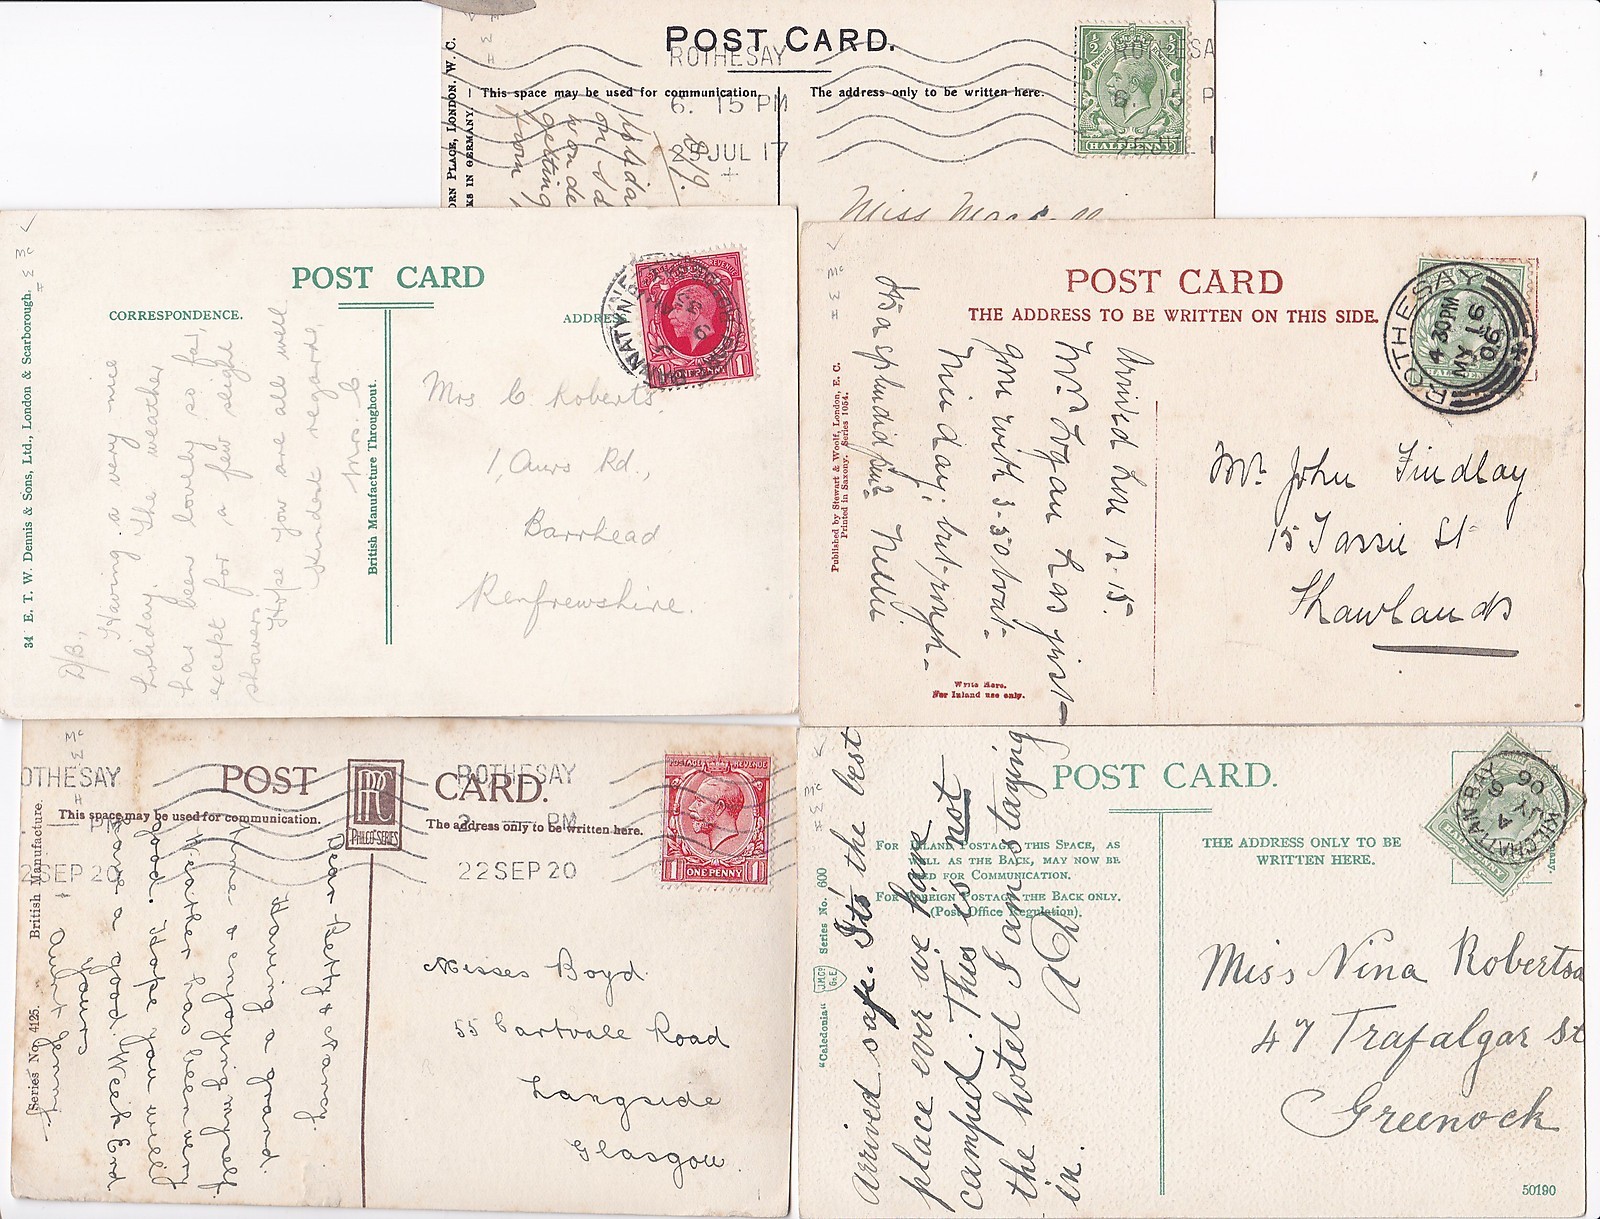 POST CARD.
ROTHESAY
6. 15 PM
25 JUL 17
This space may be used for communication.
The address only to be written here.
HALFPENNY
ORN PLACE, LONDON. W. C.
KS IN GERMANY.
Holiday
on
getting
from
Miss
POST CARD
CORRESPONDENCE.
ADDRESS
34 E. T. W. Dennis & Sons, Ltd., London & Scarborough.
British Manufacture Throughout.
BANNATYNE
ONE PENNY
D/B,
Having a very nice
holiday. The weather
has been lovely so far,
except for a few slight
showers.
Hope you are all well
Kindest regards,
Mrs. C.
Mrs C. Roberts,
1, Aurs Rd.,
Barrhead
Renfrewshire.
POST CARD
THE ADDRESS TO BE WRITTEN ON THIS SIDE.
Published by Stewart & Woolf, London, E. C.
Printed in Saxony. Series 1054.
Write Here.
For Inland use only.
ROTHESAY
4 30 PM
MY 16
06
Arrived here 12-15.
Mrs Logan has just
gone with 3-50 boat-
Nice day, but rough-
It's a splendid pier.
Nellie
Mr John Findlay
15 Tassie St
Shawlands
POST CARD.
PHILCO SERIES
ROTHESAY
PM
22 SEP 20
ROTHESAY
2 PM
22 SEP 20
This space may be used for communication.
The address only to be written here.
British Manufacture.
Series No. 4125.
POSTAGE REVENUE
1 ONE PENNY 1
Dear Betty & Nancy
Having a grand
time & enjoying myself
Weather has been very
good. Hope you will
have a good Week End
Yours
Misses Boyd.
55 Cartvale Road
Langside
Glasgow.
POST CARD.
FOR INLAND POSTAGE THIS SPACE, AS
WELL AS THE BACK, MAY NOW BE
USED FOR COMMUNICATION.
FOR FOREIGN POSTAGE THE BACK ONLY.
(Post Office Regulation).
THE ADDRESS ONLY TO BE
WRITTEN HERE.
"Caledonia" Series No. 600
KILCHATTAN BAY
JY 4
06
Arrived safe. It's the best
place ever we have
camped. This is not
the hotel I am staying
in.
Miss Nina Robertso
47 Trafalgar St
Greenock
50190